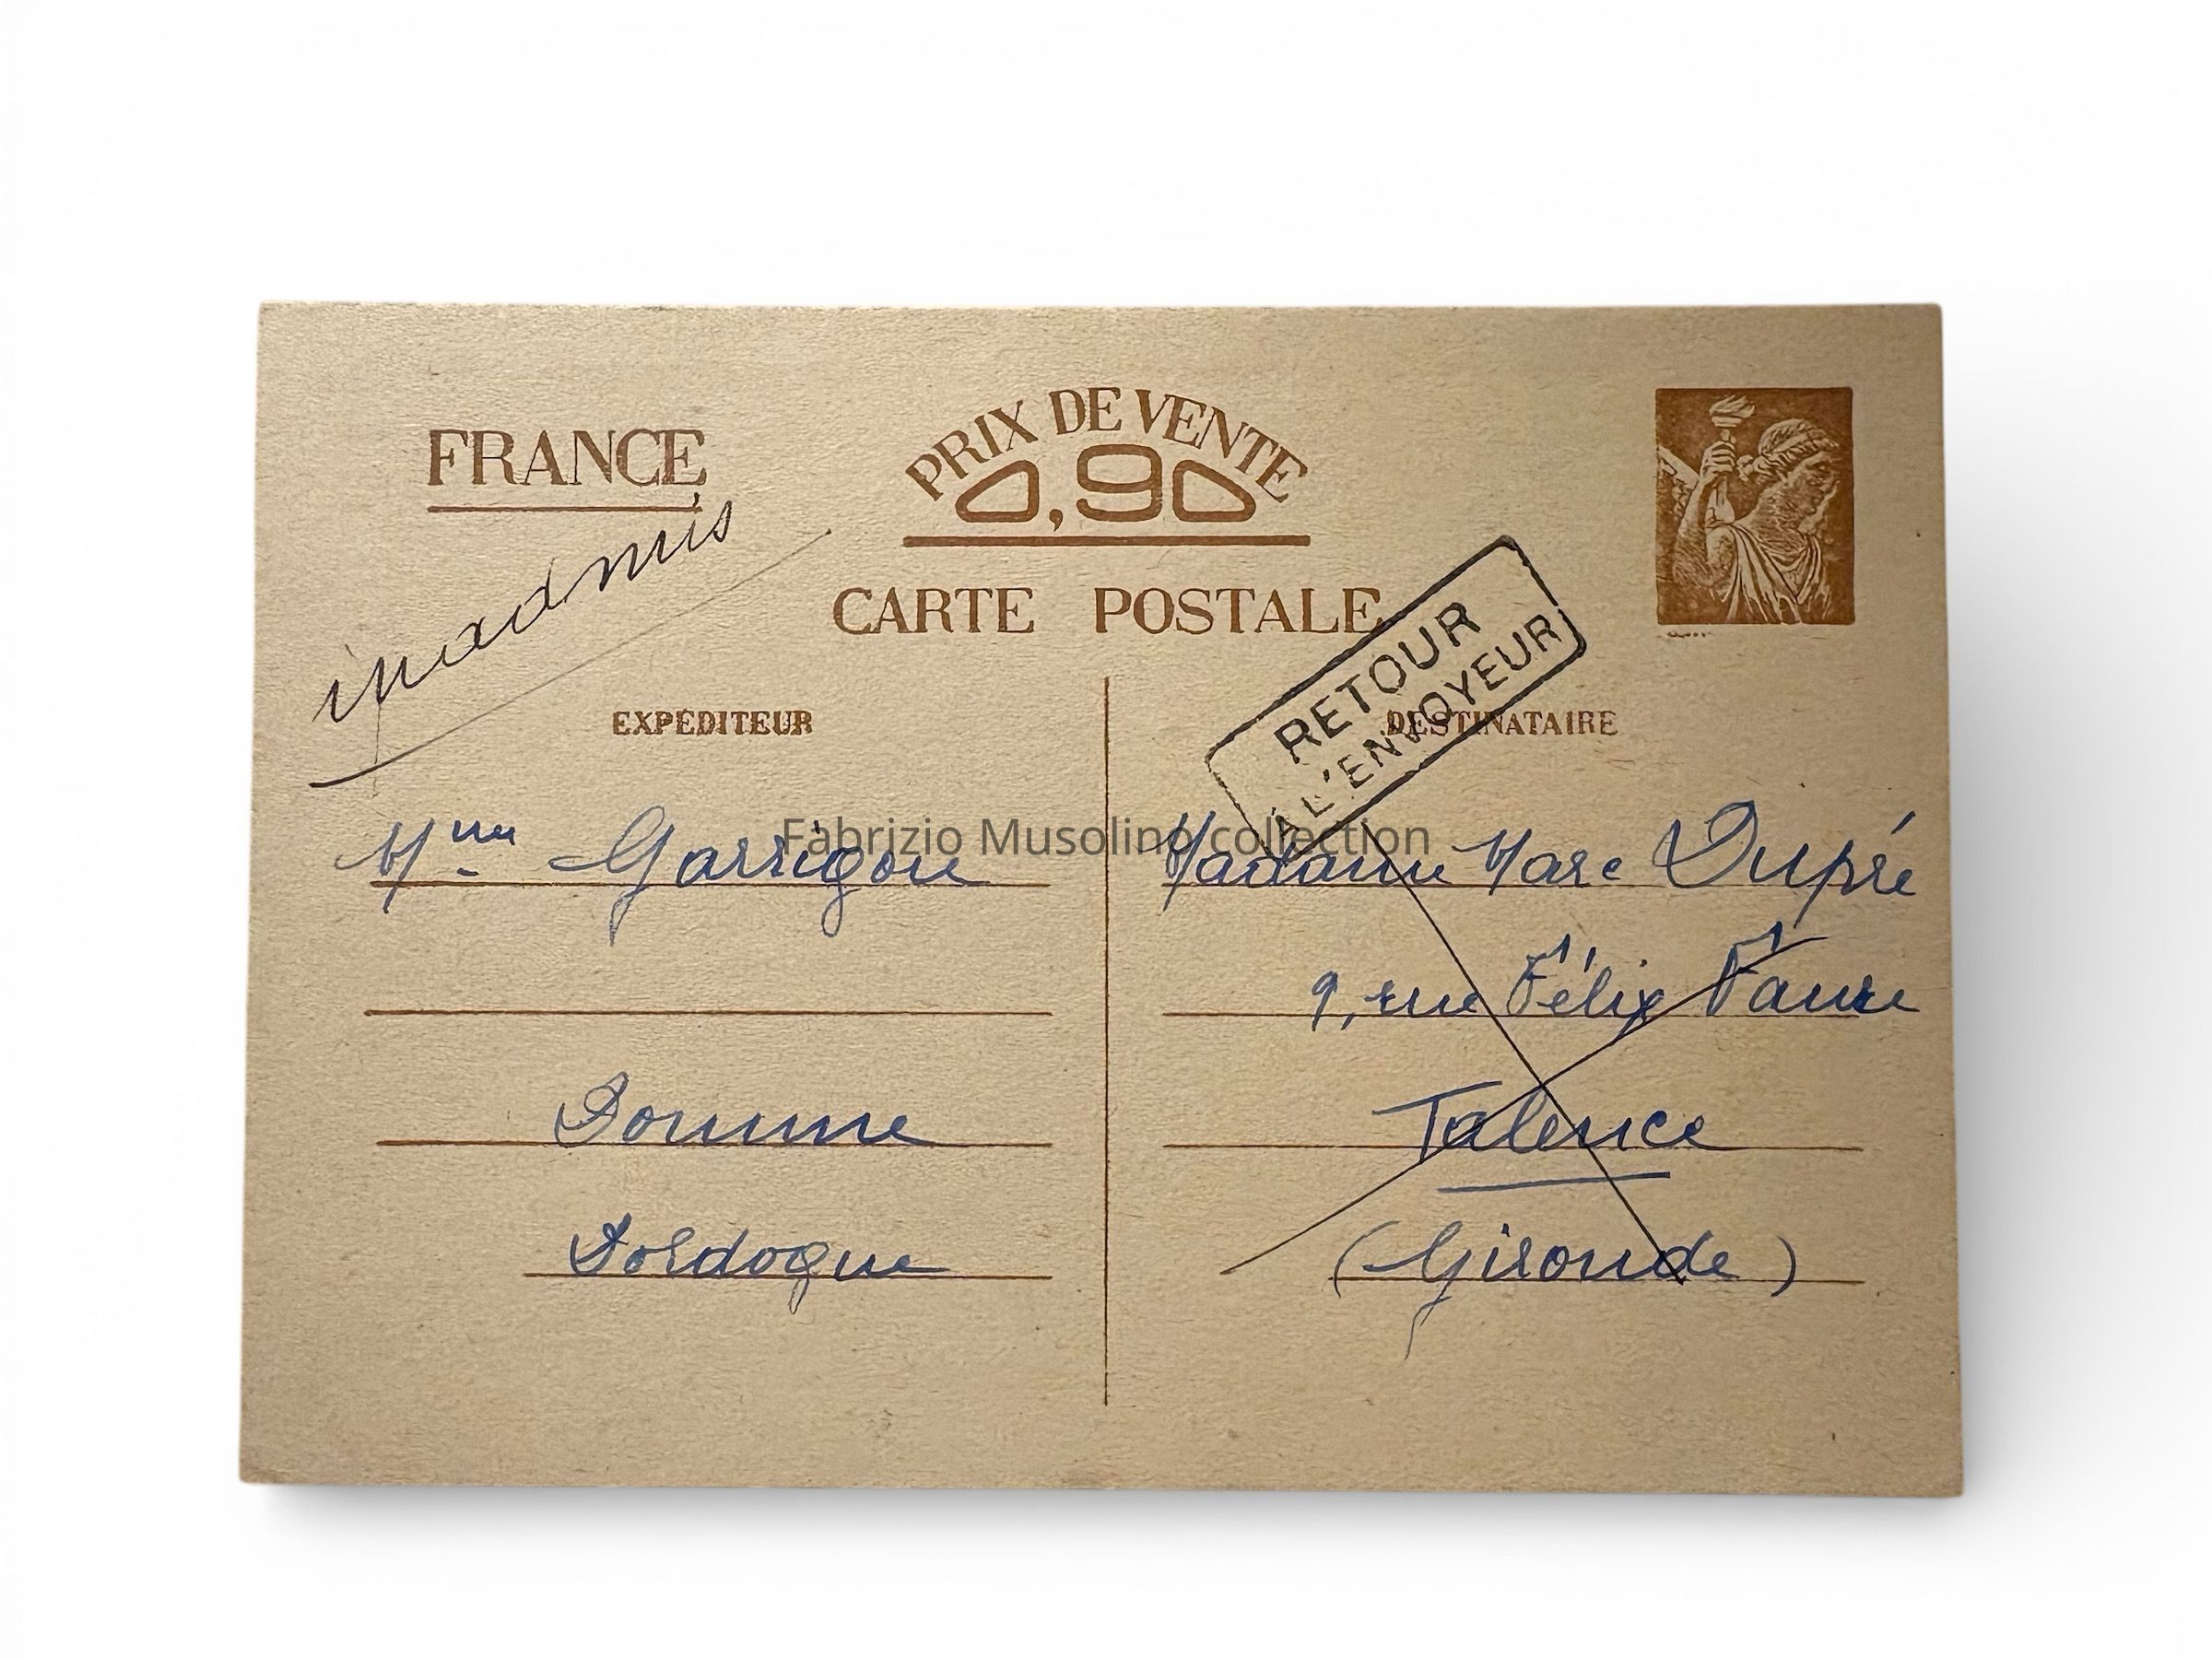 FRANCE
PRIX DE VENTE
0,90
CARTE POSTALE
inadmis
RETOUR
À L'ENVOYEUR
EXPÉDITEUR
DESTINATAIRE
Fabrizio Musolino collection
Mme Garrigou
Domme
Dordogne
Madame Marc Dupré
9, rue Félix Faure
Talence
(Gironde)